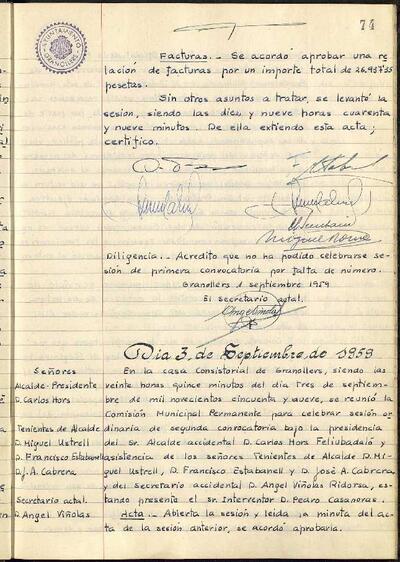 74
AYUNTAMIENTO
GRANOLLERS
Facturas.- Se acordó aprobar una re
lación de facturas por un importe total de 26.937'35
pesetas.
Sin otros asuntos a tratar, se levantó la
sesión, siendo las diez y nueve horas cuarenta
y nueve minutos. De ella extiendo esta acta;
certifico.
Diligencia.- Acredito que no ha podido celebrarse se-
sión de primera convocatoria por falta de número.
Granollers 1 septiembre 1959
El secretario actal.
Dia 3 de Septiembre de 1959
Señores
Alcalde-Presidente
D. Carlos Hors
Tenientes de Alcalde
D. Miguel Ustrell
D. Francisco Estabanell
D. J. A. Cabrera
Secretario actal.
D. Angel Viñolas
En la casa Consistorial de Granollers, siendo las
veinte horas quince minutos del dia tres de septiem-
bre de mil novecientos cincuenta y nueve, se reunió la
Comisión Municipal Permanente para celebrar sesión or
dinaria de segunda convocatoria bajo la presidencia
del Sr. Alcalde accidental D. Carlos Hors Feliubadaló y
asistencia de los señores Tenientes de Alcalde D. Mi-
guel Ustrell, D. Francisco Estabanell y D. José A. Cabrera,
y del Secretario accidental D. Angel Viñolas Ridorsa, es-
tando presente el Sr. Interventor D. Pedro Casanovas.
Acta.- Abierta la sesión y leida la minuta del
acta de la sesión anterior, se acordó aprobarla.